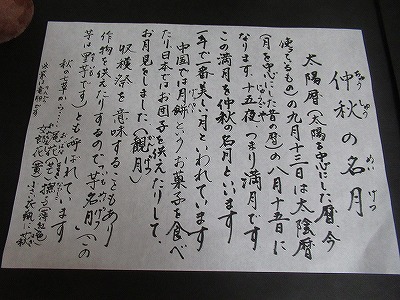 仲秋の名月
ちゅう しゅう めい げつ
太陽暦(太陽を中心にした暦、今
使ってるもの)の九月十三日は太陰暦
(月を中心にした昔の暦)の八月十五日に
なります。十五夜、つまり満月です
この満月を仲秋の名月といいます
一年で一番美しい月といわれています
中国では月餅というお菓子を食べ
げっぺい
たり日本ではお団子を供えたりして、
お月見をしました(観月)
収穫祭を意味することもあり
作物を供えたりするので、芋名月(この
芋は野芋です)とも呼ばれています
秋の七草から…
女郎花(黄)
撫子(薄紅色)